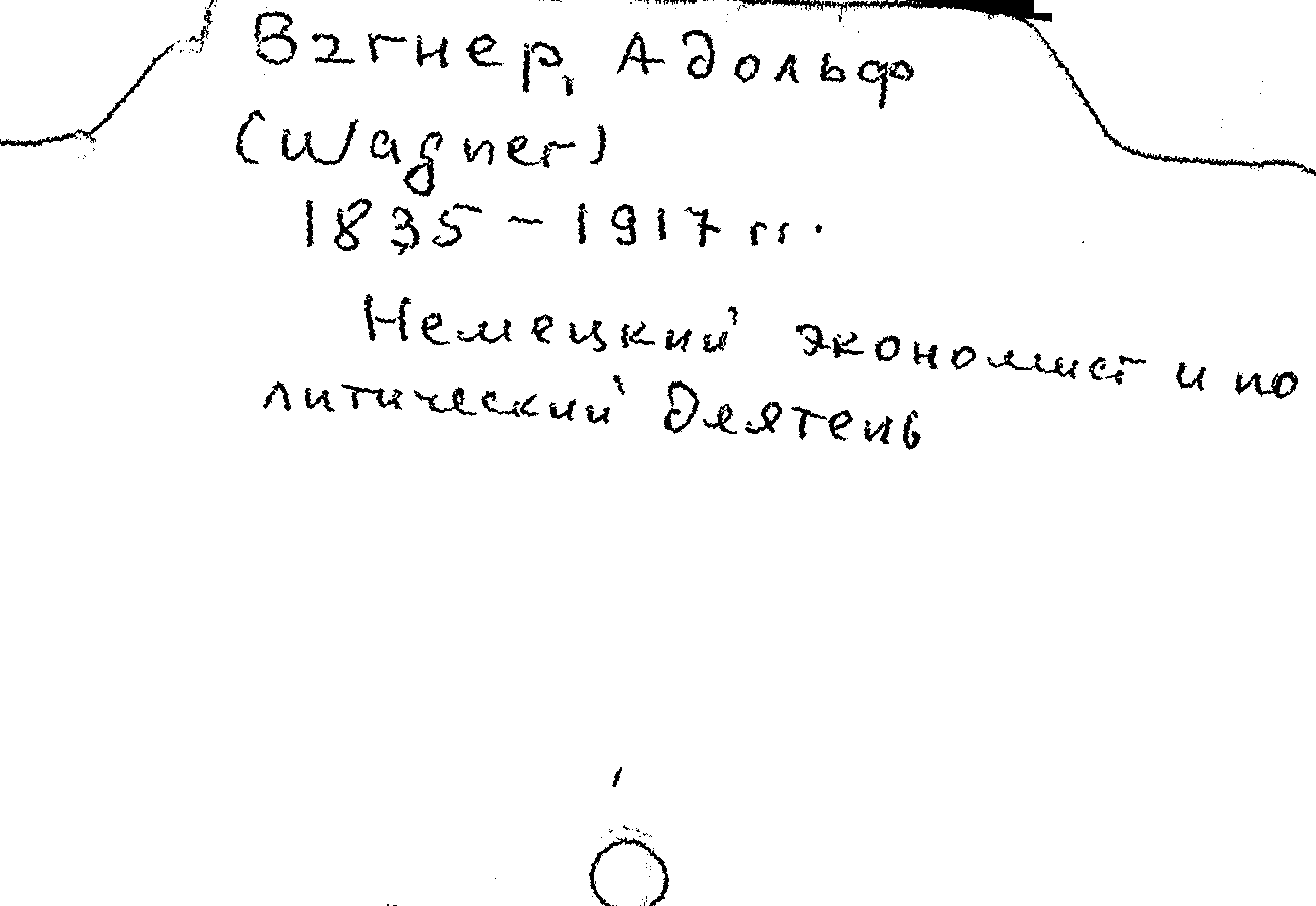 Вагнер, Адольф
(Wagner)
1835 - 1917 гг.
Немецкий экономист и по
литический деятель